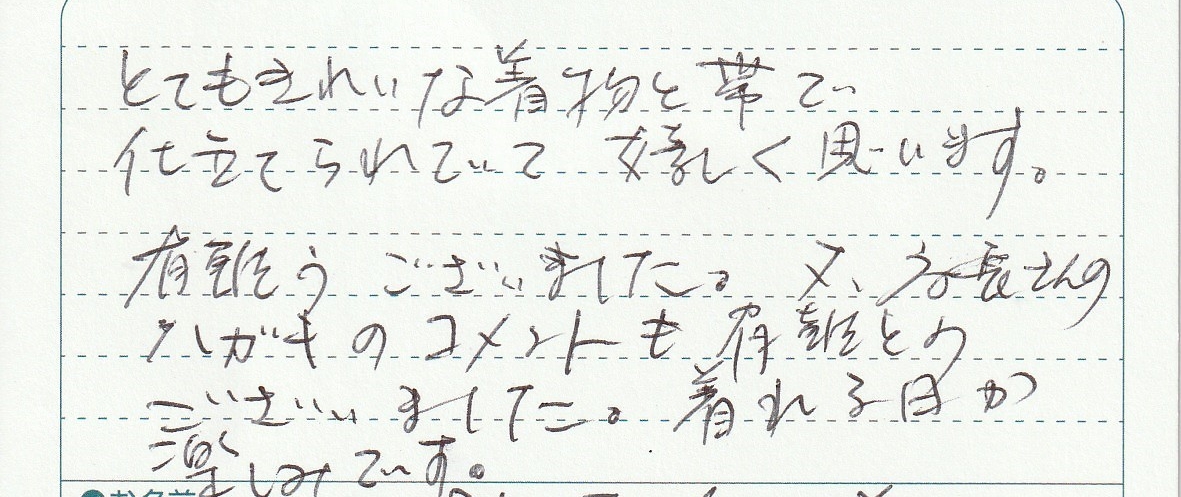 とてもきれいな着物と帯で
仕立てられていて 嬉しく思います。
有難う ございました。又、店長さんの
ハガキのコメントも 有難とう
ございました。着れる日が
楽しみです。
●お名前